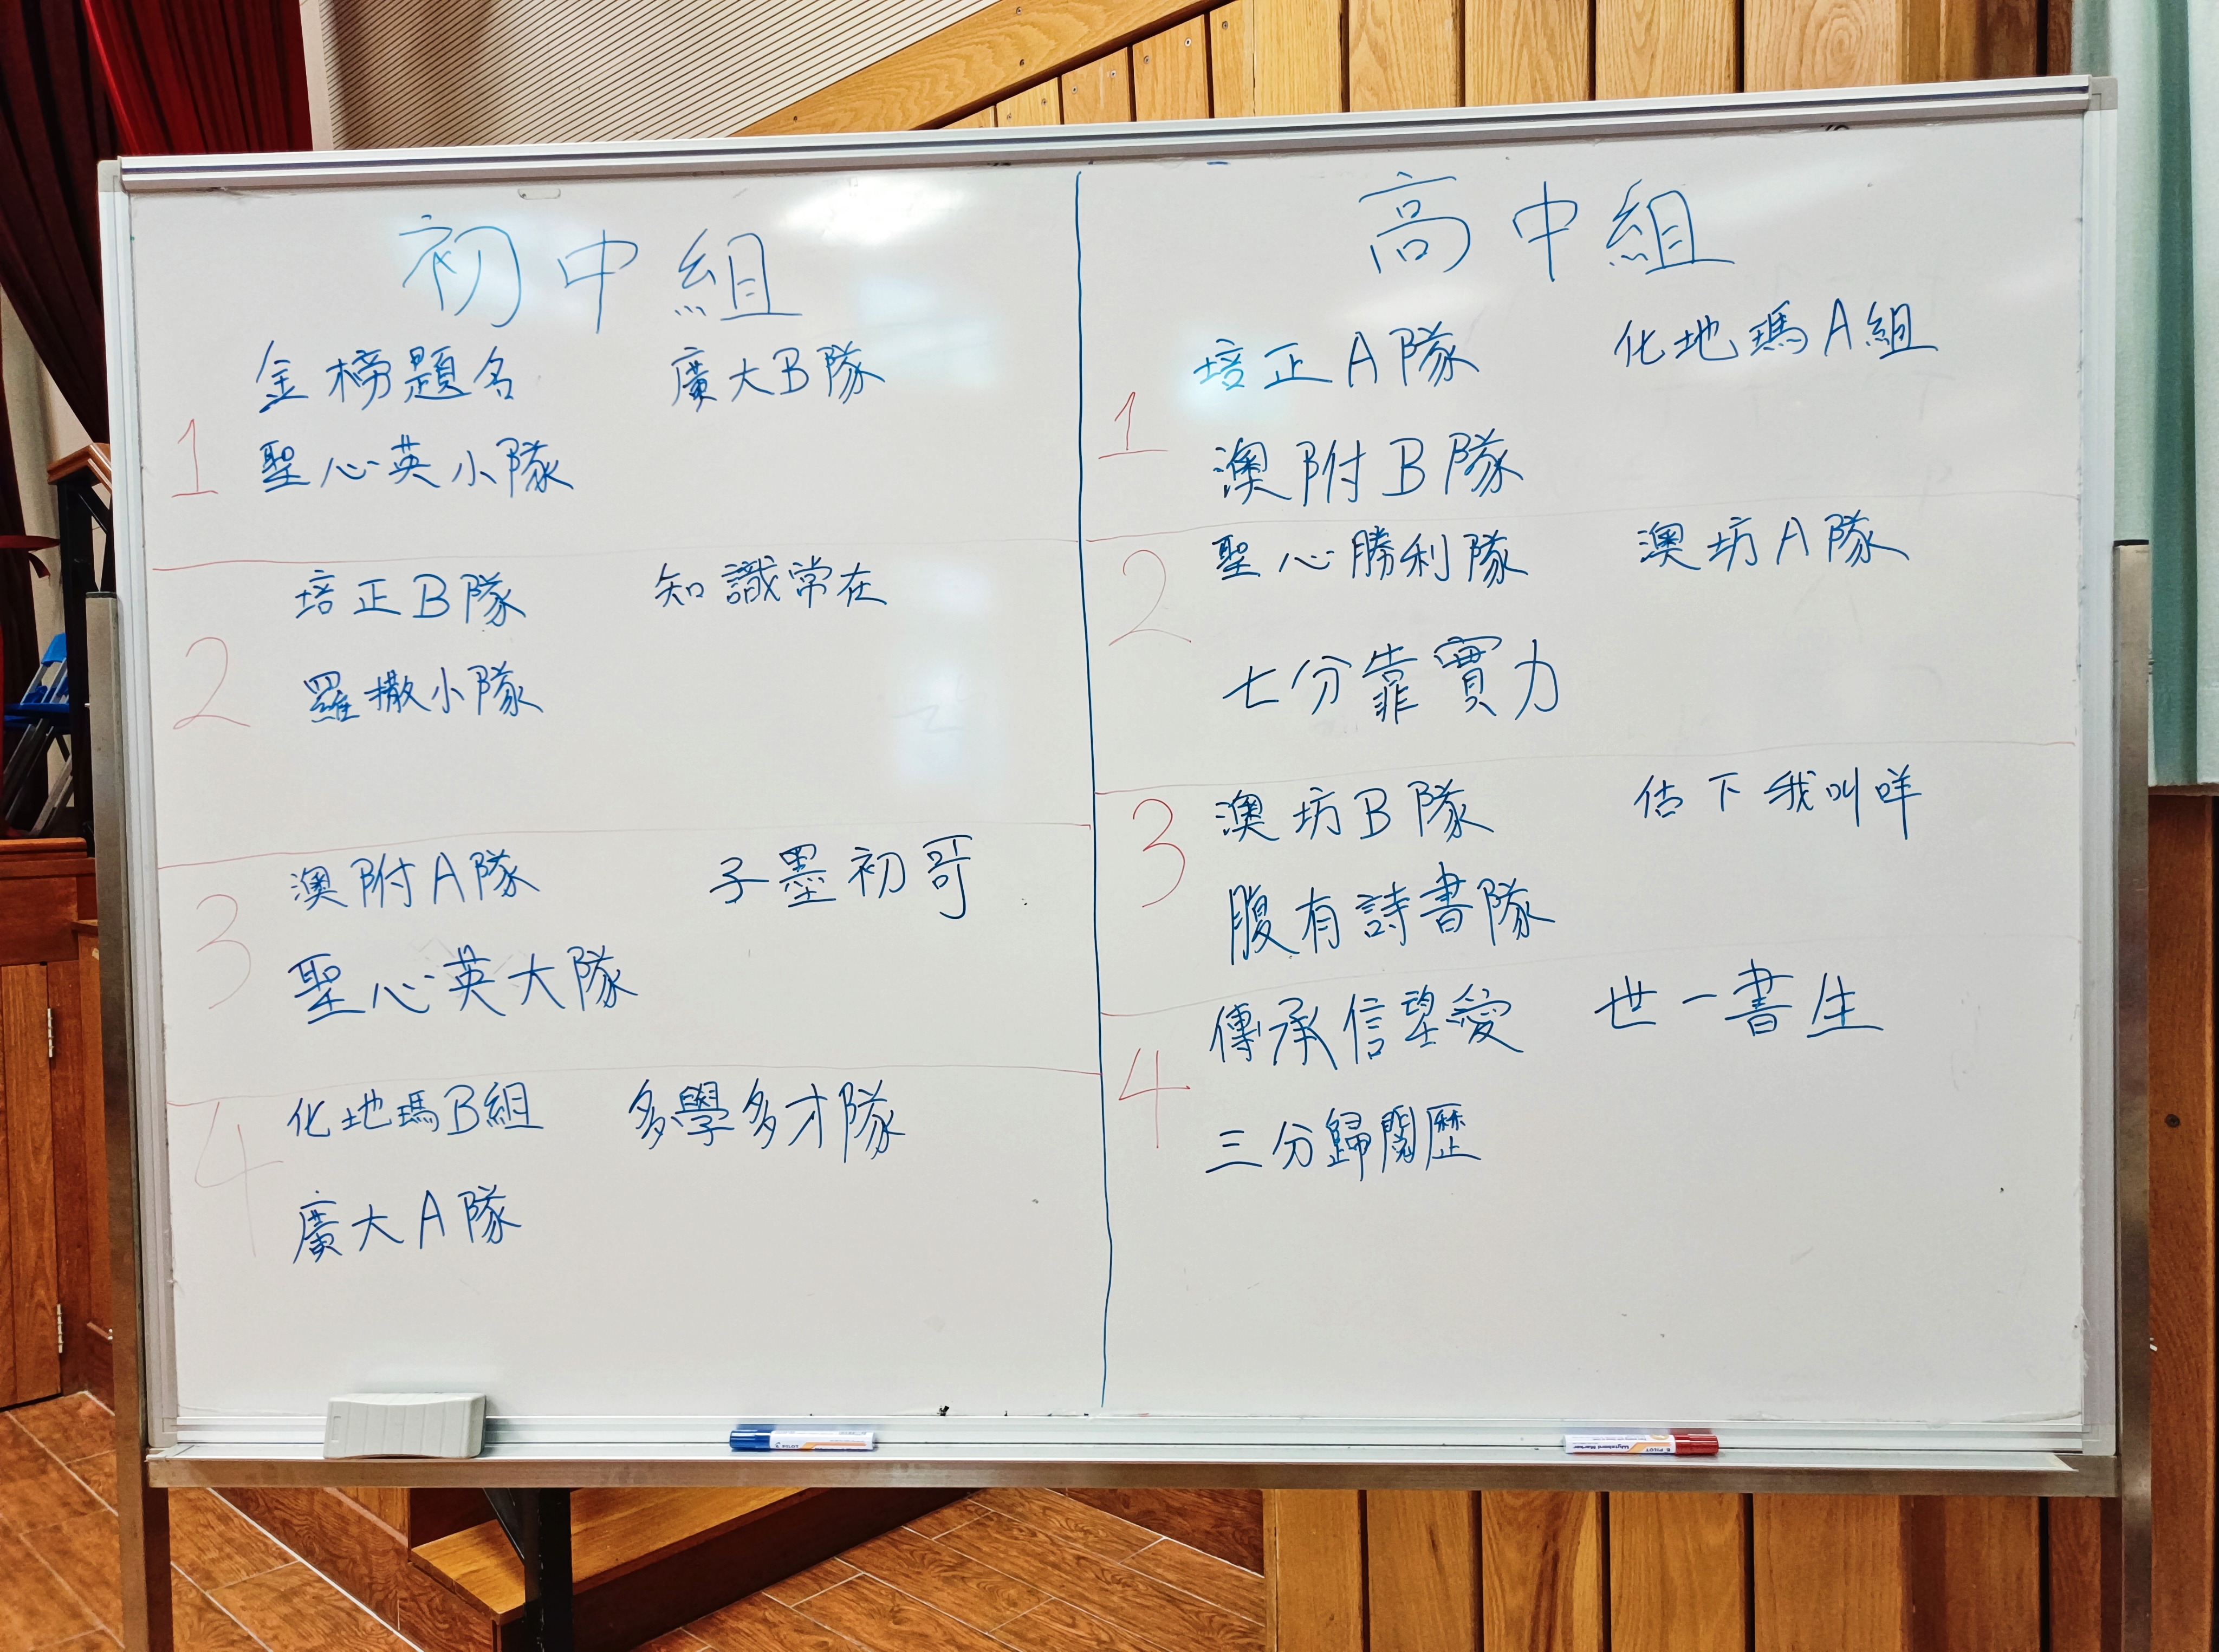 初中組
1
金榜題名 廣大B隊
聖心英小隊
2
培正B隊 知識常在
羅撒小隊
3
澳附A隊 子墨初哥
聖心英大隊
4
化地瑪B組 多學多才隊
廣大A隊
高中組
1
培正A隊 化地瑪A組
澳附B隊
2
聖心勝利隊 澳坊A隊
七分靠實力
3
澳坊B隊 估下我叫咩
腹有詩書隊
4
傳承信望愛 世一書生
三分歸閱歷
PILOT